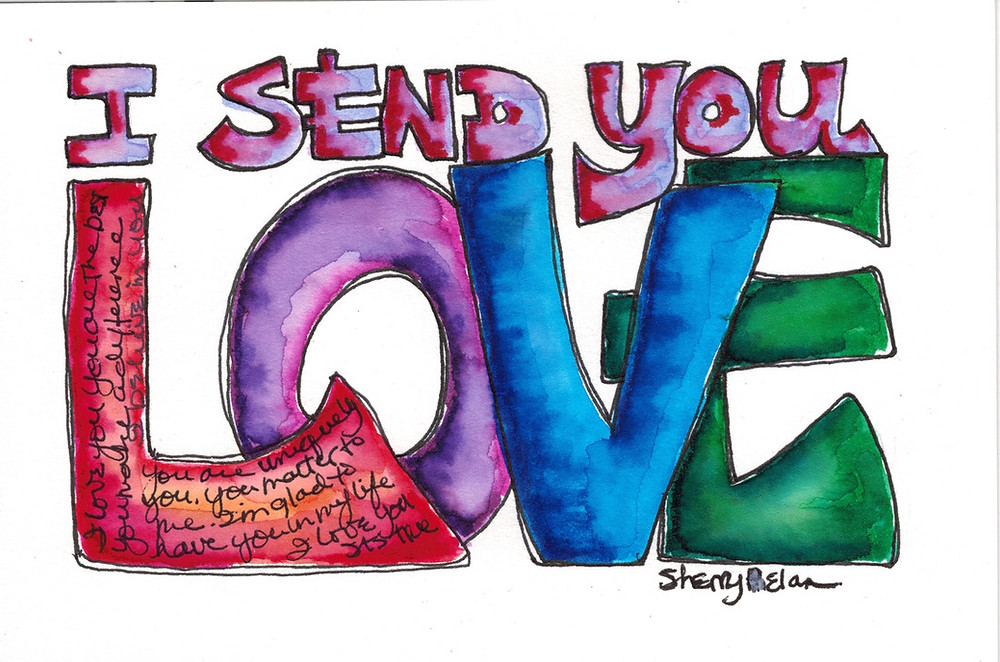 I SEND YOU
LOVE
I love you you are the best
you make a difference
believe in you
you are uniquely
you. You matter to
me. I'm glad to
have you in my life
I love you
Sherry